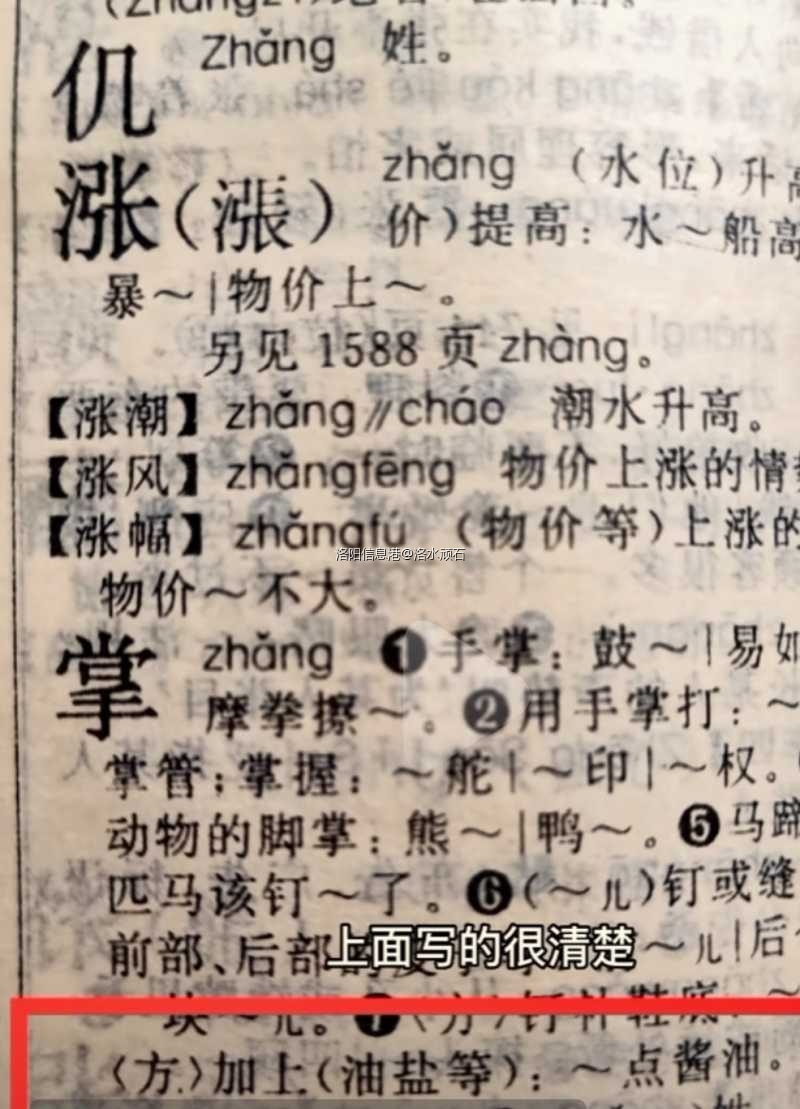 仉 Zhǎng 姓。
涨(漲) zhǎng (水位)升高
价)提高:水~船高
暴~|物价上~。
另见 1588 页 zhàng。
【涨潮】zhǎng∥cháo 潮水升高。
【涨风】zhǎngfēng 物价上涨的情
【涨幅】zhǎngfú (物价等)上涨的
洛阳信息港@洛水顽石
物价~不大。
掌 zhǎng ❶手掌:鼓~|易如
摩拳擦~。❷用手掌打:~
掌管;掌握:~舵|~印|~权。
动物的脚掌:熊~|鸭~。❺马蹄
匹马该钉~了。❻(~儿)钉或缝
前部、后部 ~儿|后
上面写的很清楚
块~儿。❼〈方〉钉补鞋底:~
〈方〉加上(油盐等):~点酱油。
姓